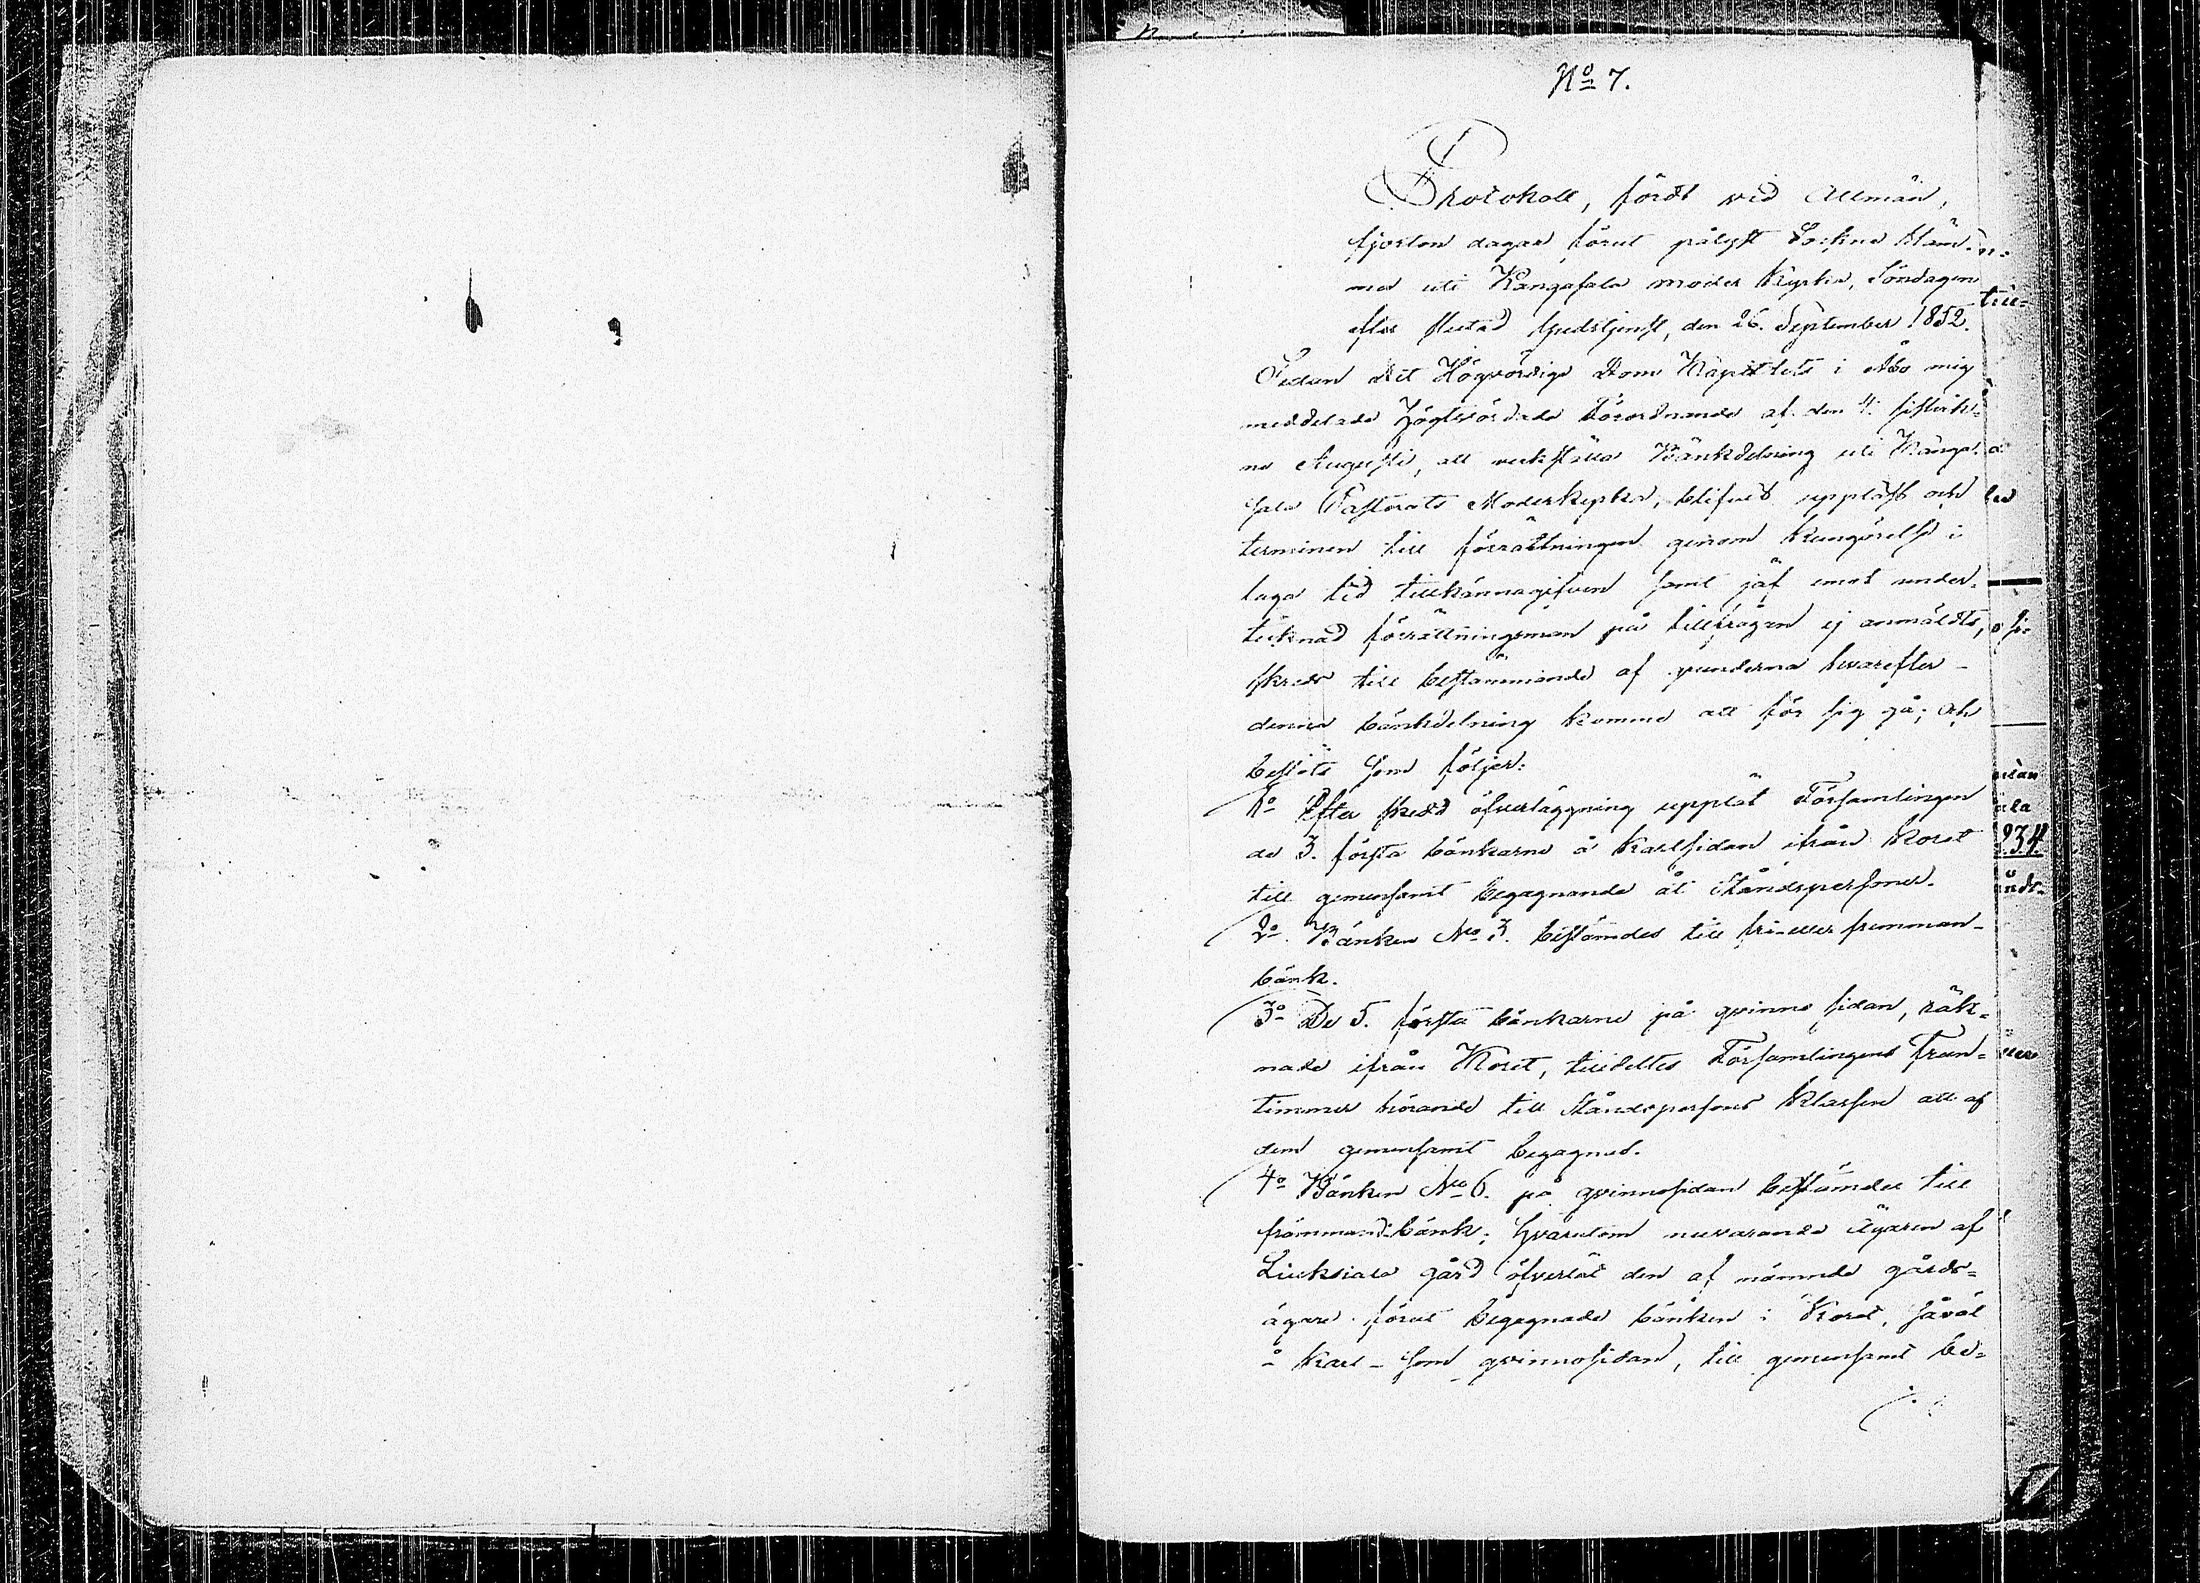 No 7.
Protokoll, fördt vid Allmän,
fjorton dagar förut pålyst Sockne Stäm-
ma uti Kangasala moder Kyrka, Söndagen
efter slutad Gudstjenst, den 26. September 1852.
Sedan det Högvördiga Dom Kapitlets i Åbo mig
meddelade Högtvördade Förordnande af den 4. sistvikt-
ne Augusti, att verkställa Bänkdelning uti Kanga-
sala Pastorats Moderkyrka, blifvit uppläst och
terminen till förrättningen genom Kungörelse i
laga tid tillkännagifven samt jäf emot under-
tecknad förrättningsman på tillfrågan ej anmäldts,
skreds till bestämmande af grunderna hvarefter
denna bänkdelning komme att för sig gå; och
beslöts som följer:
1o Efter skedd öfverläggning upplät Församlingen
de 3. första bänkarne å Karlsidan ifrån Koret
till gemensamt begagnande åt Ståndspersoner.
2o Bänken No 3. bestämdes till fri- eller fremman-
bänk.
3o De 5. första bänkarne på qvinno sidan, räk-
nade ifrån Koret, tilldeltes Församlingens Frun-
timmer hörande till Ståndspersons Klassen att af
dem gemensamt begagnas.
4o Bänken No 6. på qvinnosidan bestämdes till
främmand-bänk; hvarutom nuvarande ägaren af
Liuksiala gård öfverlät den af nämnde gårds-
ägare förut begagnade bänken i Koret, såväl
å Karl- som qvinnosidan, till gemensamt be-